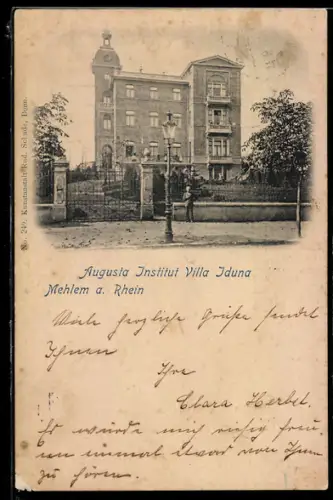 No. 249. Kunstanstalt Rud. Schade, Bonn.
Augusta Institut Villa Iduna
Mehlem a. Rhein
Viele herzliche Grüße sendet
Ihnen
Ihre
Clara Herbel.
Es würde mich riesig freu-
en einmal etwas von Ihnen
zu hören.